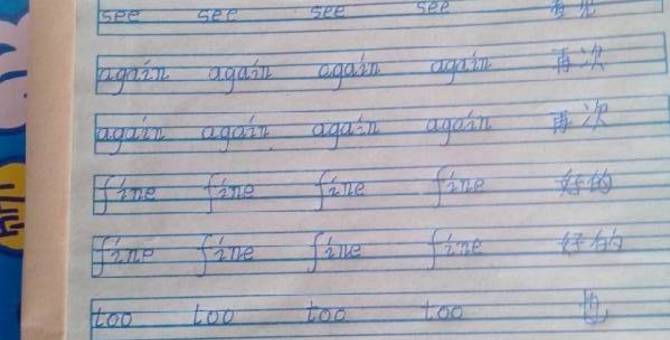 see see see see 看见
again again again again 再次
again again again again 再次
fine fine fine fine 好的
fine fine fine fine 好的
too too too too 也